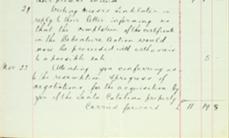 21 Writing Messrs Linklater in
reply to their letter informing us
that the completion of the certificate
in the Debenture Action would
now be proceeded with with a view
to a possible sale 5
Nov 22 Attending you conferring as
to the resumption & progress of
negotiations, for the acquisition by
you of the Santa Catalina property
Carried forward 11 19 8